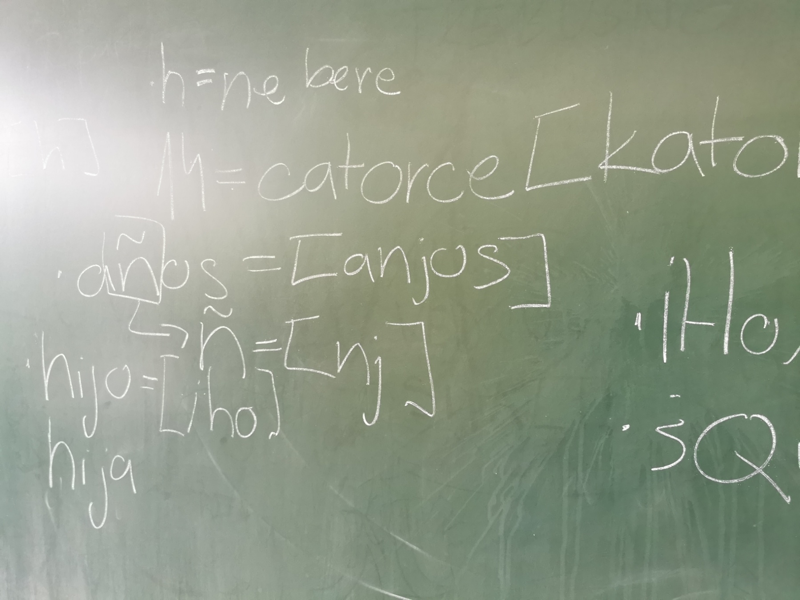 h=ne bere
[h]
14=catorce [kator
años = [anjos]
ñ=[nj]
hijo=[iho]
hija
¡Ho
¿Qu